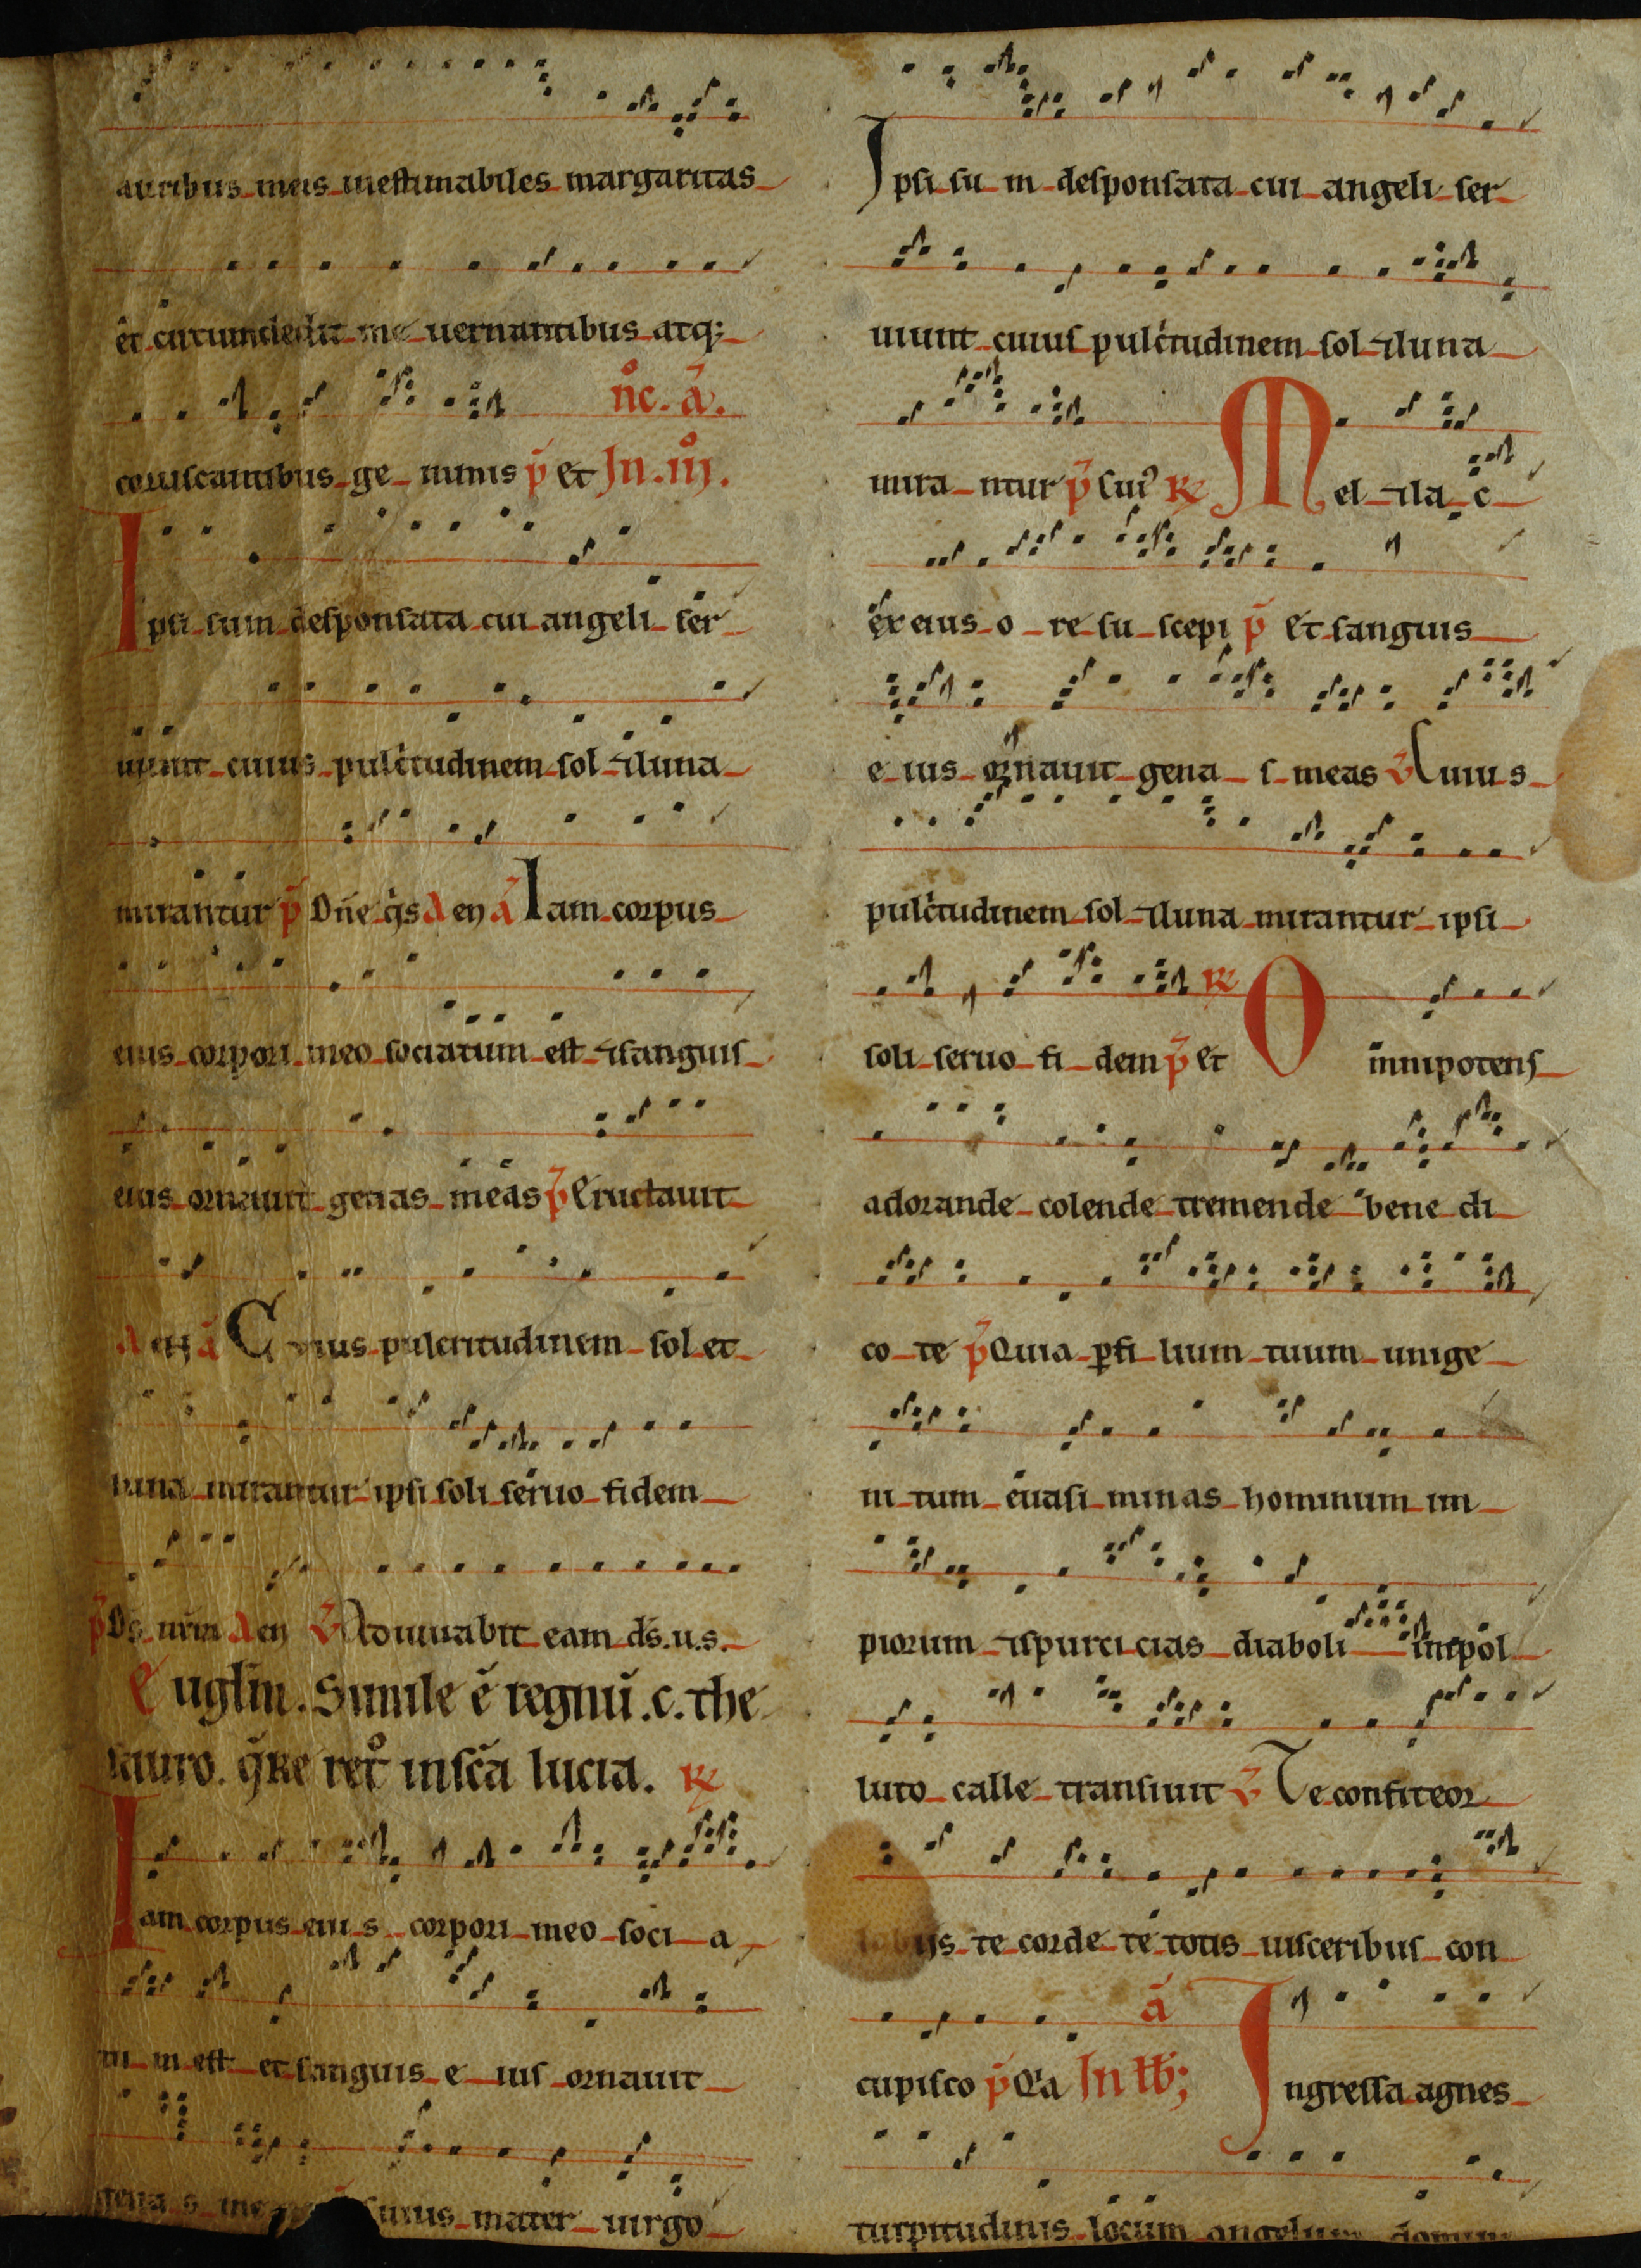 auribus meis inestimabiles margaritas
et circumdedit me uernantibus atq;
coruscantibus ge mmis p̄ et In .iij.
n̊c. ā.
Ipsi sum desponsata cui angeli ser
uiunt cuius pulcritudinem sol ⁊ luna
mirantur p̄ Dn̄e q̄s A eN ā Iam corpus
eius corpori meo sociatum est ⁊ sanguis
eius ornauit genas meas p̄ Eructauit
A eN ā Cuius pulcritudinem sol et
luna mirantur ipsi soli seruo fidem
p̄ Ds̄ nr̄m A eN v̄ Adiuuabit eam ds̄.u.s.
Euglm̄. Simile ē regnū .c. the
sauro. q̄re ret̊ in sc̄a lucia. ℟
Iam corpus eiu s corpori meo soci a
tu m est et sanguis e ius ornauit
gena s me uius mater uirgo
Ipsi su m desponsata cui angeli ser
uiunt cuius pulcritudinem sol ⁊ luna
mira ntur p̄ Cui᾿ ℟ Mel ⁊ la c
ex eius o re su scepi p̄ Et sanguis
e ius ornauit gena s meas v̄ Cuius
pulcritudinem sol ⁊ luna mirantur ipsi
soli seruo fi dem p̄ et ℟ Omnipotens
adorande colende tremende bene di
co te p̄ Quia ꝑ fi lium tuum unige
ni tum euasi minas hominum im
piorum ⁊ spurci cias diaboli inpol
luto calle transiuit v̄ Te confiteor
labijs te corde te totis uisceribus con
cupisco p̄ Q'a In lłb; ā Ingressa agnes
turpitudinis locum angelum domini